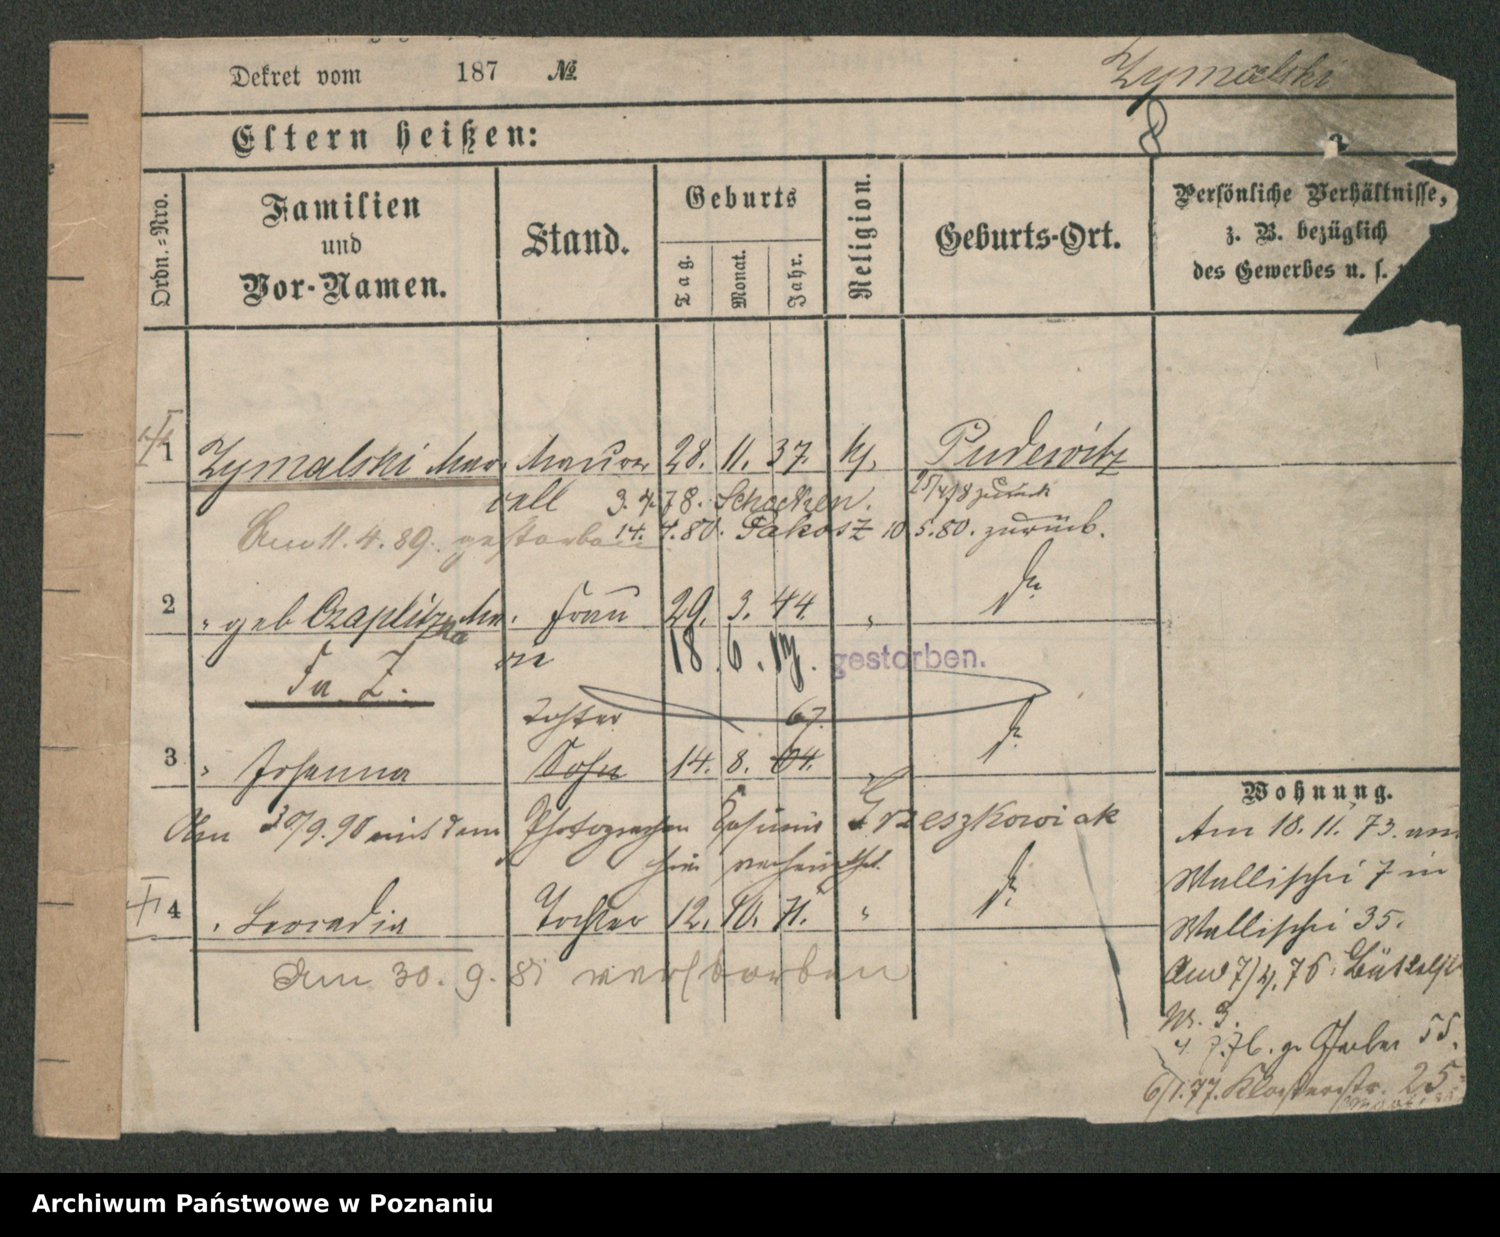 Dekret vom 187 №
Zymalski
Eltern heißen:
8
Ordn.=Nro.
Familien
und
Vor-Namen.
Stand.
Geburts
Tag.
Monat.
Jahr.
Religion.
Geburts-Ort.
Persönliche Verhältnisse,
z. B. bezüglich
des Gewerbes u. s.
1 Zymalski Mar Maurer 28. 11. 37. kj. Pudewitz
cell 3. 4. 78. Schocken. 25/4 78 zurück
Am 11. 4. 89. gestorben 14. 4. 80. Pakosz 10 5. 80. zurück.
2 " geb Czaplicka Ma. Frau 29. 3. 44. " do
rie 18. 6. 17. gestorben.
Fa Z.
Tochter 67.
3 " Johanna Sohn 14. 8. 64. " do
Am 30/9. 90 mit dem Photographen Casimir Grzeszkowiak
hier verheirathet.
4 " Leocadia Tochter 12. 10. 71. " do
Am 30. 9. 81 verstorben
Wohnung.
Am 18. 11. 73. am
Wallischei 7 in
Wallischei 35.
Am 7/4. 76.
Nr. 3.
7. 76. gr Gerber 55.
6/1. 77. Klosterstr. 25.
Archiwum Państwowe w Poznaniu